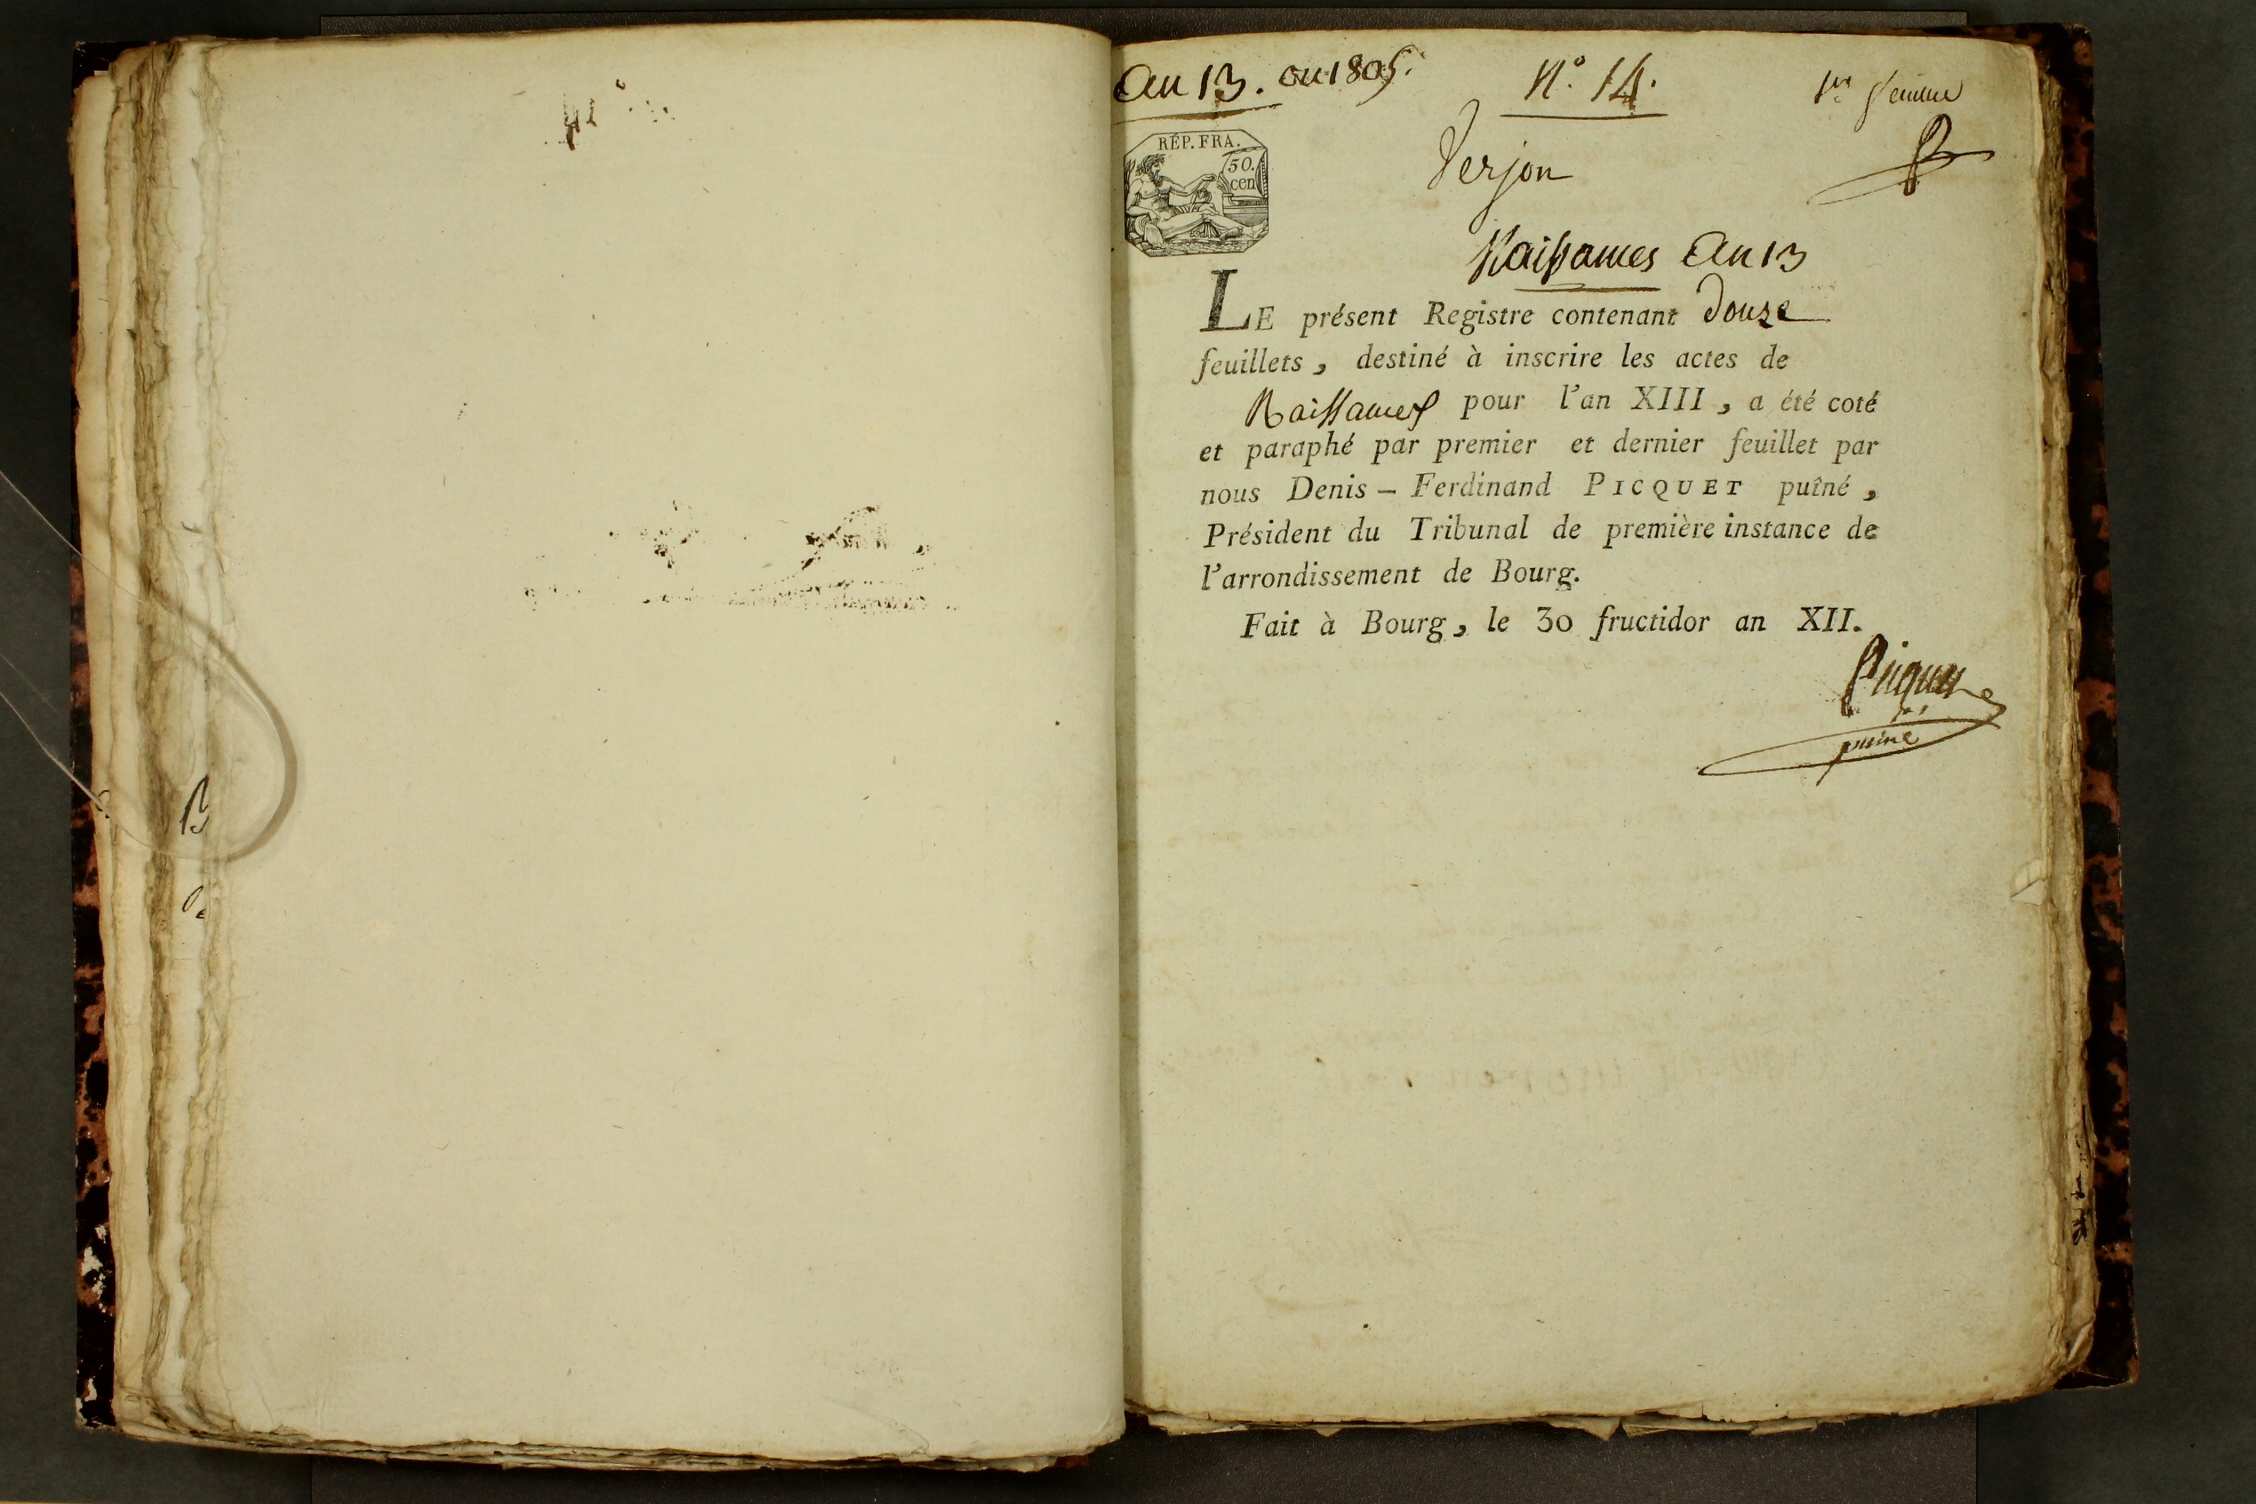 An 13. ou 1805.
N.° 14.
1er feuillet
Verjon
RÉP. FRA.
50.
cen
Naissances An 13
LE présent Registre contenant Douze
feuillets, destiné à inscrire les actes de
Naissances pour l'an XIII, a été coté
et paraphé par premier et dernier feuillet par
nous Denis - Ferdinand PICQUET puîné,
Président du Tribunal de première instance de
l'arrondissement de Bourg.
Fait à Bourg, le 30 fructidor an XII.
Picquet
puiné